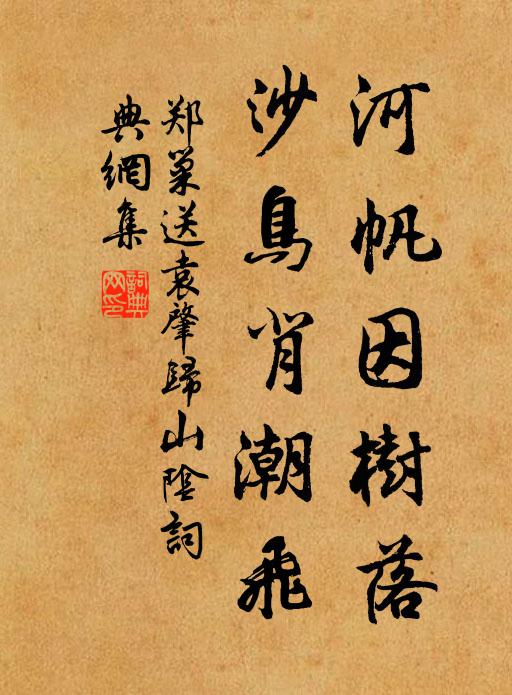 河帆因樹落
沙鳥背潮飛
郑巢送袁肇歸山陰詞
典網集
詞典
网印